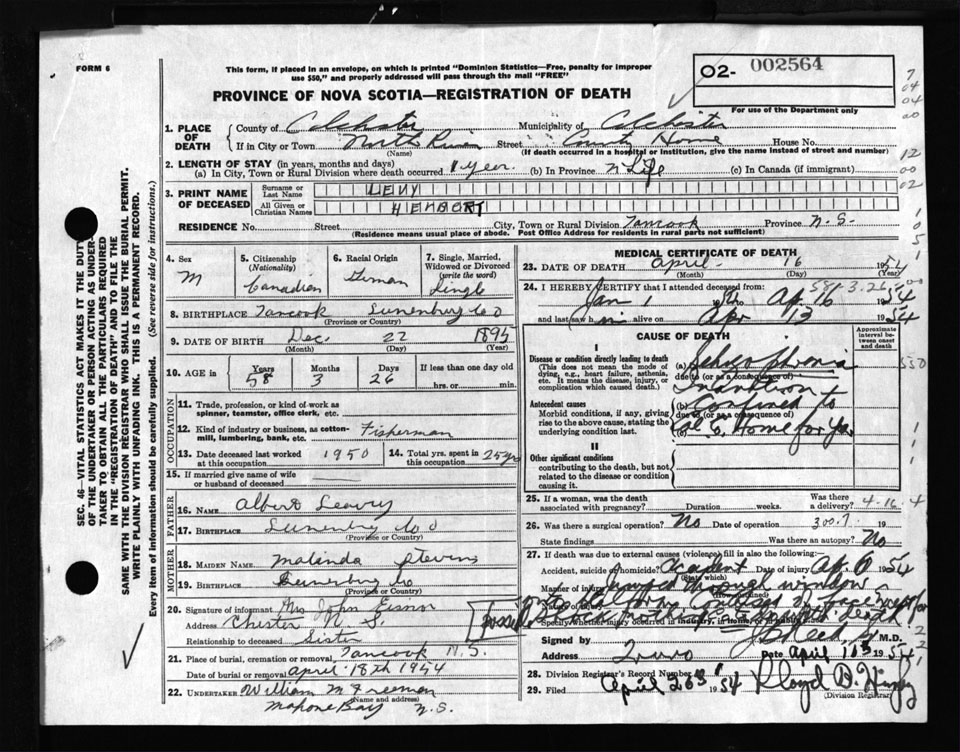 FORM 6
This form, if placed in an envelope, on which is printed "Dominion Statistics—Free, penalty for improper
use $50," and properly addressed will pass through the mail "FREE"
02- 002564
For use of the Department only
PROVINCE OF NOVA SCOTIA—REGISTRATION OF DEATH
1. PLACE OF DEATH { County of Colchester Municipality of Colchester
If in City or Town North River Street County Home House No.
(Name) (If death occurred in a hospital or institution, give the name instead of street and number)
2. LENGTH OF STAY (in years, months and days)
(a) In City, Town or Rural Division where death occurred 1 year. (b) In Province Life (c) In Canada (if immigrant)
3. PRINT NAME OF DECEASED { Surname or Last Name LEVY
All Given or Christian Names
RESIDENCE No. Street City, Town or Rural Division Tancook Province N.S.
(Residence means usual place of abode. Post Office Address for residents in rural parts not sufficient)
4. Sex M
5. Citizenship (Nationality) Canadian
6. Racial Origin German
7. Single, Married, Widowed or Divorced (write the word) Single
8. BIRTHPLACE Tancook Lunenburg Co
(Province or Country)
9. DATE OF BIRTH Dec. 22 1895
(Month) (Day) (Year)
10. AGE in { Years 58 Months 3 Days 26 If less than one day old
hrs. or min.
OCCUPATION
11. Trade, profession, or kind of work as
spinner, teamster, office clerk, etc.
12. Kind of industry or business, as cotton-
mill, lumbering, bank, etc. Fisherman
13. Date deceased last worked at this occupation 1950 14. Total yrs. spent in this occupation 25 yrs
15. If married give name of wife
or husband of deceased
FATHER
16. NAME Albert Leavy
17. BIRTHPLACE Lunenburg Co
(Province or Country)
MOTHER
18. MAIDEN NAME Malinda Stevens
19. BIRTHPLACE Lunenburg Co
(Province or Country)
20. Signature of informant Mrs John Eisnor
Address Chester N.S.
Relationship to deceased Sister
21. Place of burial, cremation or removal Tancook N.S.
Date of burial or removal April 18th 1954
22. UNDERTAKER William M Freeman
(Name and address)
Mahone Bay N.S.
MEDICAL CERTIFICATE OF DEATH
23. DATE OF DEATH April 16 1954
(Month) (Day) (Year)
24. I HEREBY CERTIFY that I attended deceased from
Jan 1 to Ap. 16 1954
and last saw him alive on Apr 13 1954
CAUSE OF DEATH
Approximate interval between onset and death
I
Disease or condition directly leading to death
(This does not mean the mode of dying, e.g., heart failure, asthenia, etc. It means the disease, injury, or complication which caused death.)
(a) Schizophrenia
due to (or as a consequence of)
Inanition
Antecedent causes
Morbid conditions, if any, giving rise to the above cause, stating the underlying condition last.
(b) Confined to
due to (or as a consequence of)
(c) Col Co. Home for yrs
II
Other significant conditions
contributing to the death, but not related to the disease or condition causing it.
25. If a woman, was the death associated with pregnancy? Duration weeks. Was there a delivery? 4-16-4
26. Was there a surgical operation? No Date of operation 19
State findings Was there an autopsy? No
27. If death was due to external causes (violence) fill in also the following:—
Accident, suicide or homicide? Accident Date of injury Ap. 6 1954
(State which)
Manner of injury Jumped through window
Nature of injury
Specify whether injury occurred in industry, in home, or
Signed by M.D.
Address Truro Date April 1954
28. Division Registrar's Record Number
29. Filed April 26 1954 Lloyd
(Division Registrar)
SEC. 46—VITAL STATISTICS ACT MAKES IT THE DUTY
OF THE UNDERTAKER OR PERSON ACTING AS UNDER-
TAKER TO OBTAIN ALL THE PARTICULARS REQUIRED
IN THE "REGISTRATION OF DEATH" AND TO FILE THE
SAME WITH THE DIVISION REGISTRAR WHO SHALL ISSUE THE BURIAL PERMIT.
WRITE PLAINLY WITH UNFADING INK. THIS IS A PERMANENT RECORD.
Every item of information should be carefully supplied. (See reverse side for instructions.)